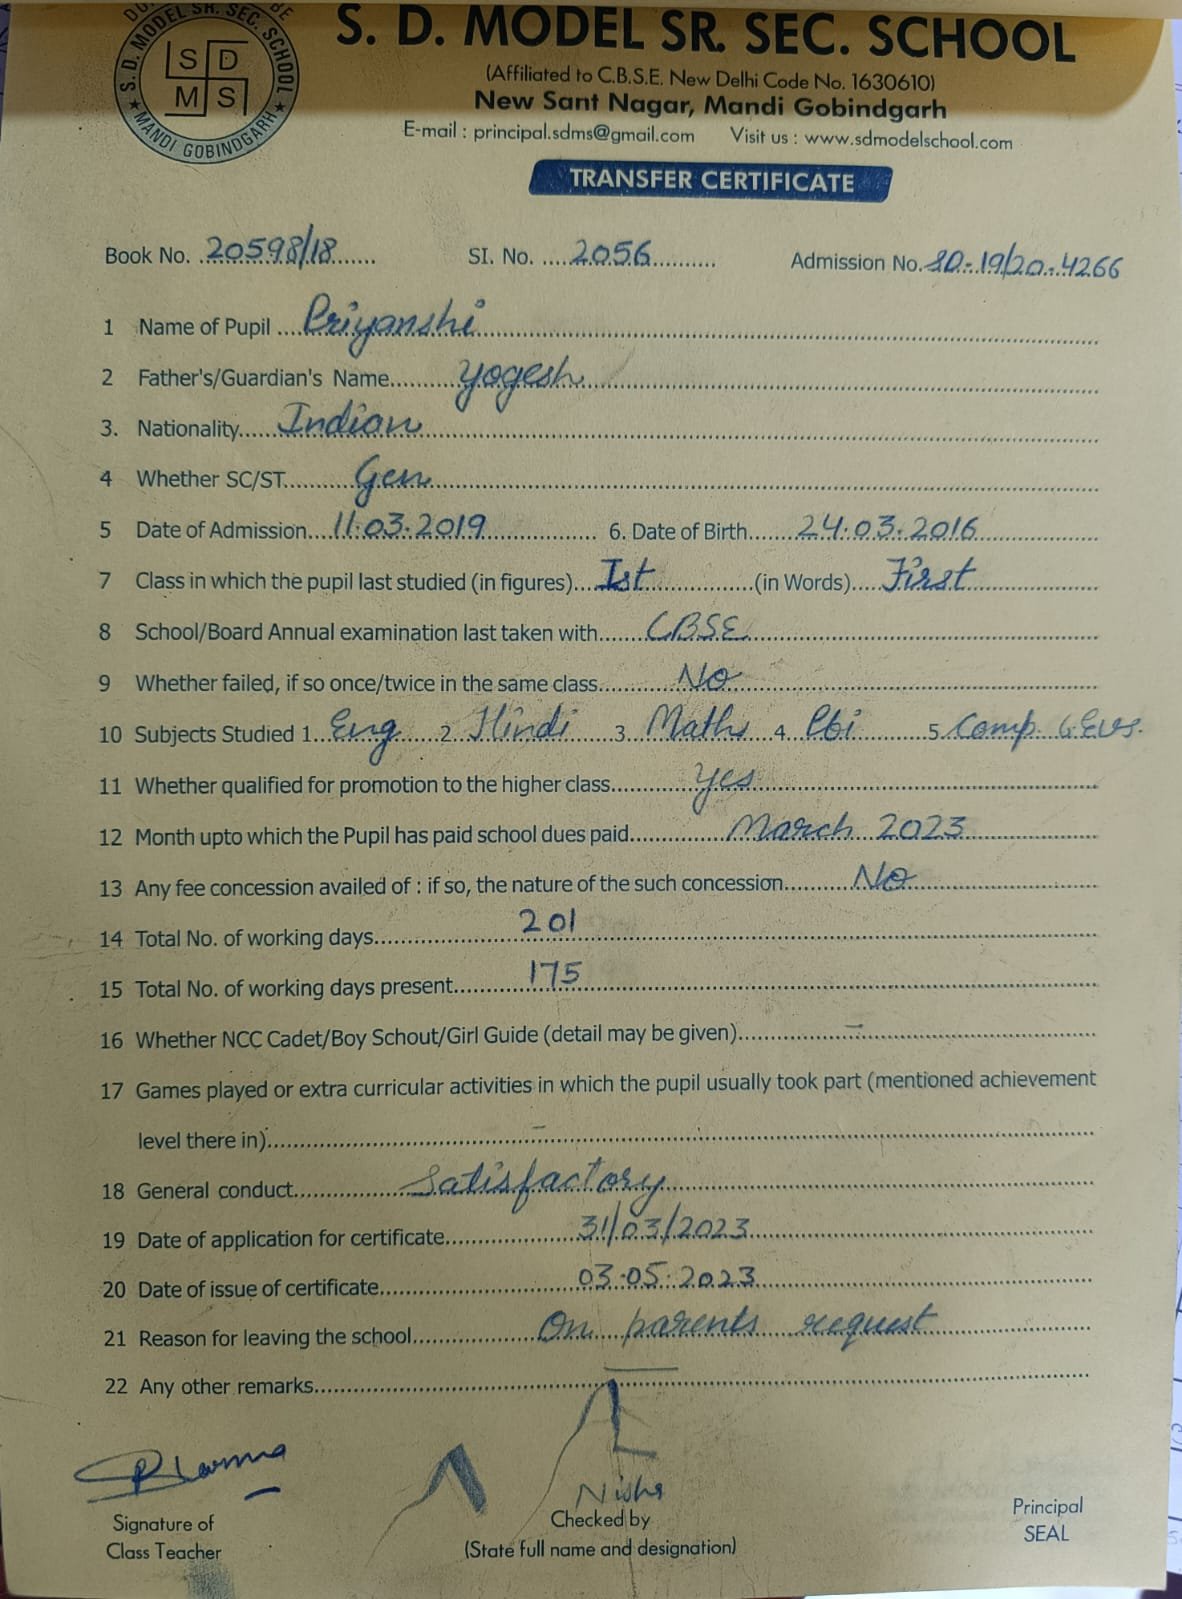 S. D. MODEL SR. SEC. SCHOOL
S. D. MODEL SR. SEC. SCHOOL
S D
M S
MANDI GOBINDGARH
(Affiliated to C.B.S.E. New Delhi Code No. 1630610)
New Sant Nagar, Mandi Gobindgarh
E-mail : principal.sdms@gmail.com Visit us : www.sdmodelschool.com
TRANSFER CERTIFICATE
Book No. 20598/18 SI. No. 2056 Admission No. SD-19/20-4266
1 Name of Pupil Priyanshi
2 Father's/Guardian's Name Yogesh
3. Nationality Indian
4 Whether SC/ST Gen
5 Date of Admission 11.03.2019 6. Date of Birth 24.03.2016
7 Class in which the pupil last studied (in figures) Ist (in Words) First
8 School/Board Annual examination last taken with CBSE
9 Whether failed, if so once/twice in the same class No
10 Subjects Studied 1 Eng 2 Hindi 3 Maths 4 Pbi 5 Comp. 6 EVS.
11 Whether qualified for promotion to the higher class yes
12 Month upto which the Pupil has paid school dues paid March 2023
13 Any fee concession availed of : if so, the nature of the such concession No
14 Total No. of working days 201
15 Total No. of working days present 175
16 Whether NCC Cadet/Boy Schout/Girl Guide (detail may be given) –
17 Games played or extra curricular activities in which the pupil usually took part (mentioned achievement
level there in) –
18 General conduct Satisfactory
19 Date of application for certificate 31/03/2023
20 Date of issue of certificate 03.05.2023
21 Reason for leaving the school On parents request
22 Any other remarks –
Sharma
Nisha
Signature of
Class Teacher
Checked by
(State full name and designation)
Principal
SEAL